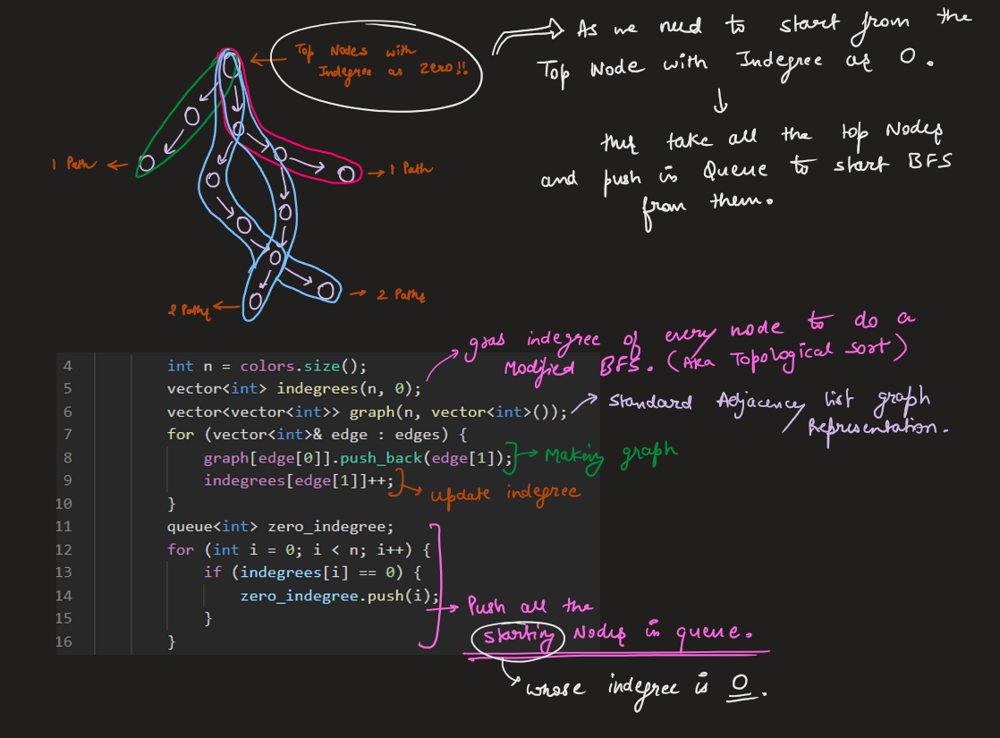 Top Nodes with
Indegree as zero!!
As we need to start from the
Top Node with Indegree as 0.
thus take all the top Nodes
and push in Queue to start BFS
from them.
1 Path
1 Path
2 Paths
2 Paths
grab indegree of every node to do a
Modified BFS. (Aka Topological sort)
Standard Adjacency list graph
Representation.
4 int n = colors.size();
5 vector<int> indegrees(n, 0);
6 vector<vector<int>> graph(n, vector<int>());
7 for (vector<int>& edge : edges) {
8 graph[edge[0]].push_back(edge[1]);
Making graph
9 indegrees[edge[1]]++;
update indegree
10 }
11 queue<int> zero_indegree;
12 for (int i = 0; i < n; i++) {
13 if (indegrees[i] == 0) {
14 zero_indegree.push(i);
15 }
16 }
Push all the
starting Nodes in queue.
whose indegree is 0.